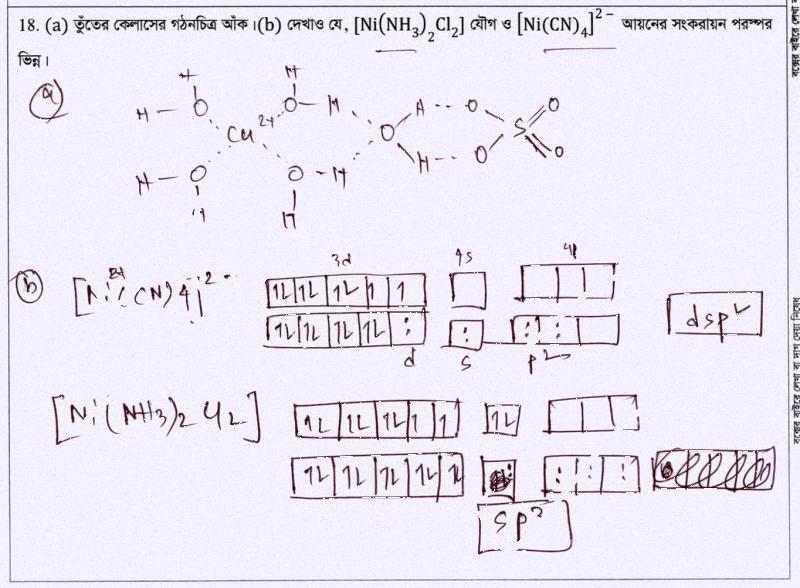 18. (a) তুঁতের কেলাসের গঠনচিত্র আঁক। (b) দেখাও যে, [Ni(NH₃)₂Cl₂] যৌগ ও [Ni(CN)₄]²⁻ আয়নের সংকরায়ন পরস্পর
ভিন্ন।
a
H H
H — O O — H A --- O O
Cu 2+ O S
H — O O - H H --- O O
H H
b [Ni 2+ (CN)4]2-
3d 4s 4p
1L 1L 1L 1 1
1L 1L 1L 1L : : : :
d s p2
dsp2
[Ni(NH3)2Cl2]
1L 1L 1L 1 1 1L
1L 1L 1L 1L 1L : : : :
sp3